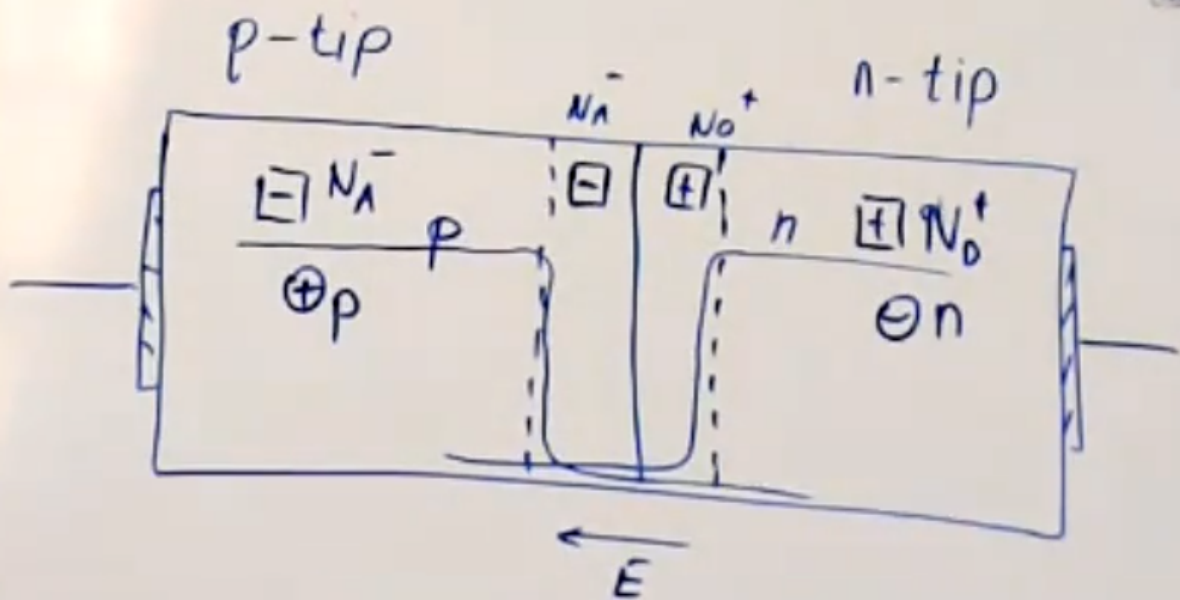 p-tip
n-tip
NA⁻
ND⁺
⊟ NA⁻
⊟
⊞
⊞ ND⁺
p
n
⊕p
⊖n
E